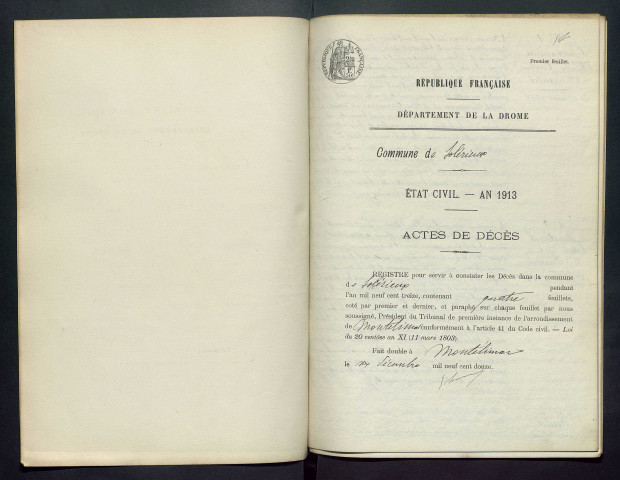 Premier feuillet.
RÉPUBLIQUE FRANÇAISE
DÉPARTEMENT DE LA DROME
Commune de Solérieux
ÉTAT CIVIL. — AN 1913
ACTES DE DÉCÈS
REGISTRE pour servir à constater les Décès dans la commune
de Solérieux pendant
l'an mil neuf cent treize, contenant quatre feuillets,
coté par premier et dernier, et paraphé sur chaque feuillet par nous
soussigné, Président du Tribunal de première instance de l'arrondissement
de Montélimar conformément à l'article 41 du Code civil. — Loi
du 20 ventôse an XI (11 mars 1803).
Fait double à Montélimar
le décembre mil neuf cent douze.